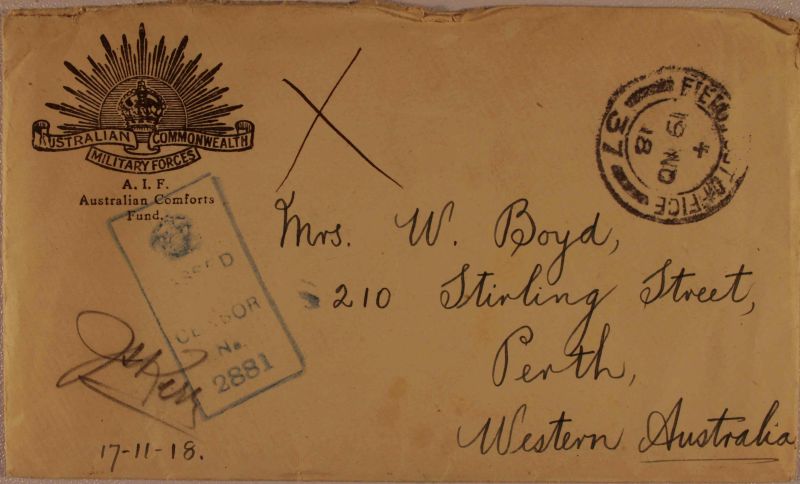 AUSTRALIAN COMMONWEALTH
MILITARY FORCES
A. I. F.
Australian Comforts
Fund.
FIELD POST OFFICE
37
19
4
NO
18
PASSED
CENSOR
No.
2881
Mrs. W. Boyd,
210 Stirling Street,
Perth,
Western Australia
17-11-18.